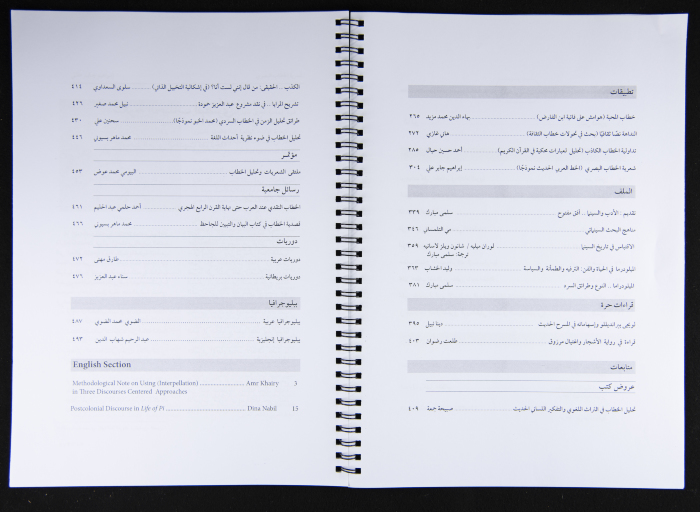 تطبيقات
خطاب المحبة (هوامش على فائية ابن الفارض) ... بهاء الدين محمد مزيد ٢٦٥
النداهة نصًا ثقافيًا (بحث في تحولات خطاب الثقافة) ... هاني غازي ٢٧٢
تداولية الخطاب الكاذب (تحليل لعبارات محكية في القرآن الكريم) ... أحمد حسين حيال ٢٨٥
شعرية الخطاب البصري (الخط العربي الحديث نموذجًا) ... إبراهيم جابر علي ٣٠٤
الملف
تقديم: الأدب والسينما .. أفق مفتوح ... سلمى مبارك ٣٣٩
مناهج البحث السينمائي ... مي التلمساني ٣٤٦
الاقتباس في تاريخ السينما ... لوران ميليه / شانون ويلز لاسانيه ٣٥٩
ترجمة: سلمى مبارك
الميلودرما في الحياة والفن: الترفيه والطمأنة والسياسة ... وليد الخشاب ٣٦٣
الميلودراما .. النوع وطرائق السرد ... سلمى مبارك ٣٨١
قراءات حرة
لويجي بيرانديللو وإسهاماته في المسرح الحديث ... دينا نبيل ٣٩٥
قراءة في رواية الأشجار واغتيال مرزوق ... طلعت رضوان ٤٠٣
متابعات
عروض كتب
تحليل الخطاب في التراث اللغوي والتفكير اللساني الحديث ... صبيحة جمعة ٤٠٩
الكذب .. الحقيقي: من قال إنني لست أنا؟! (في إشكالية التخييل الذاتي) ... سلوى السعداوي ٤١٤
تشريح المرايا .. في نقد مشروع عبد العزيز حمودة ... نبيل محمد صغير ٤٢٦
طرائق تحليل الزمن في الخطاب السردي (محمد الخبو نموذجًا) ... سحنين علي ٤٣٠
تحليل الخطاب في ضوء نظرية أحداث اللغة ... محمد ماهر بسيوني ٤٤٦
مؤتمر
ملتقى الشعريات وتحليل الخطاب ... اليومي محمد عوض ٤٥٣
رسائل جامعية
الخطاب النقدي عند العرب حتى نهاية القرن الرابع الهجري ... أحمد حلمي عبد الحليم ٤٦١
قصدية الخطاب في كتاب البيان والتبيين للجاحظ ... محمد ماهر بسيوني ٤٦٦
دوريات
دوريات عربية ... طارق مهني ٤٧٢
دوريات بريطانية ... سناء عبد العزيز ٤٧٦
ببليوجرافيا
ببليوجرافيا عربية ... الضوي محمد الضوي ٤٨٧
ببليوجرافيا إنجليزية ... عبد الرحيم شهاب الدين ٤٩٣
English Section
Methodological Note on Using (Interpellation) ... Amr Khairy 3
in Three Discourses Centered Approaches
Postcolonial Discourse in Life of Pi ... Dina Nabil 15